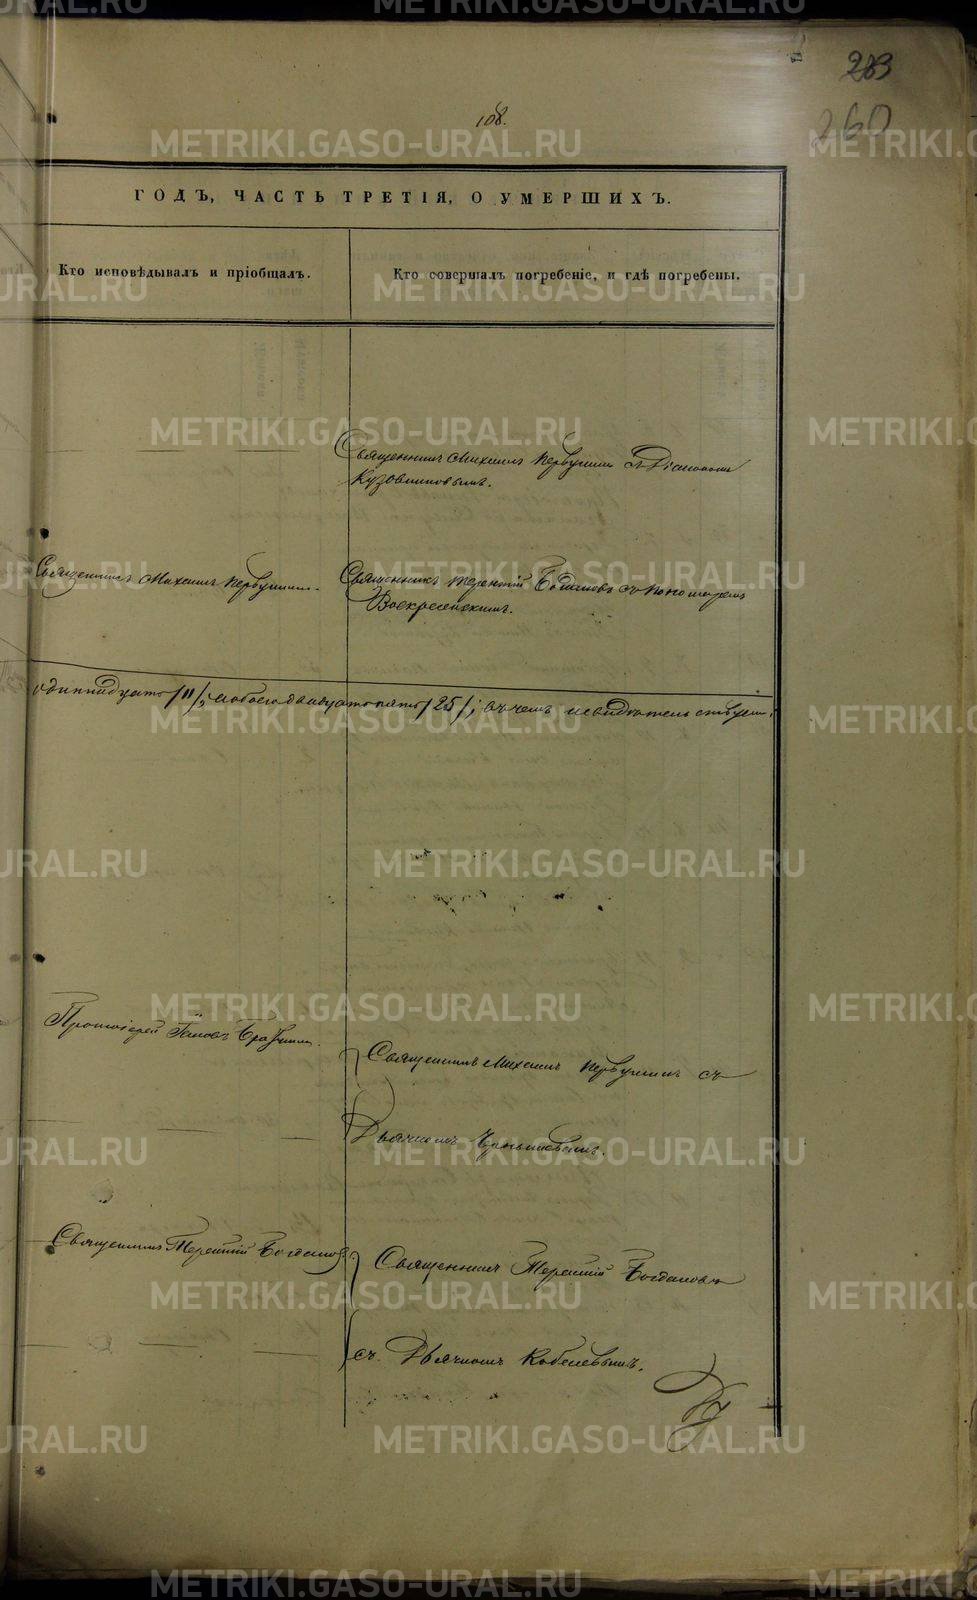 METRIKI.GASO-URAL.RU
283
108.
260
ГОДЪ, ЧАСТЬ ТРЕТІЯ, О УМЕРШИХЪ.
Кто исповѣдывалъ и пріобщалъ.
Кто совершалъ погребеніе, и гдѣ погребены.
Священникъ Михаилъ Первушинъ съ Діакономъ
Кузовниковымъ.
Священникъ Михаилъ Первушинъ.
Священникъ Терентій Богдановъ съ пономаремъ
Воскресенскимъ.
одиннадцать /11/, обоего двадцать пять /25/; въ чемъ и свидѣтельствуемъ.
Протоіерей Іаковъ
Священникъ Михаилъ Первушинъ съ
Дьячкомъ
Священникъ Терентій Богдановъ.
Священникъ Терентій Богдановъ
съ Дьячкомъ Кобелевымъ.